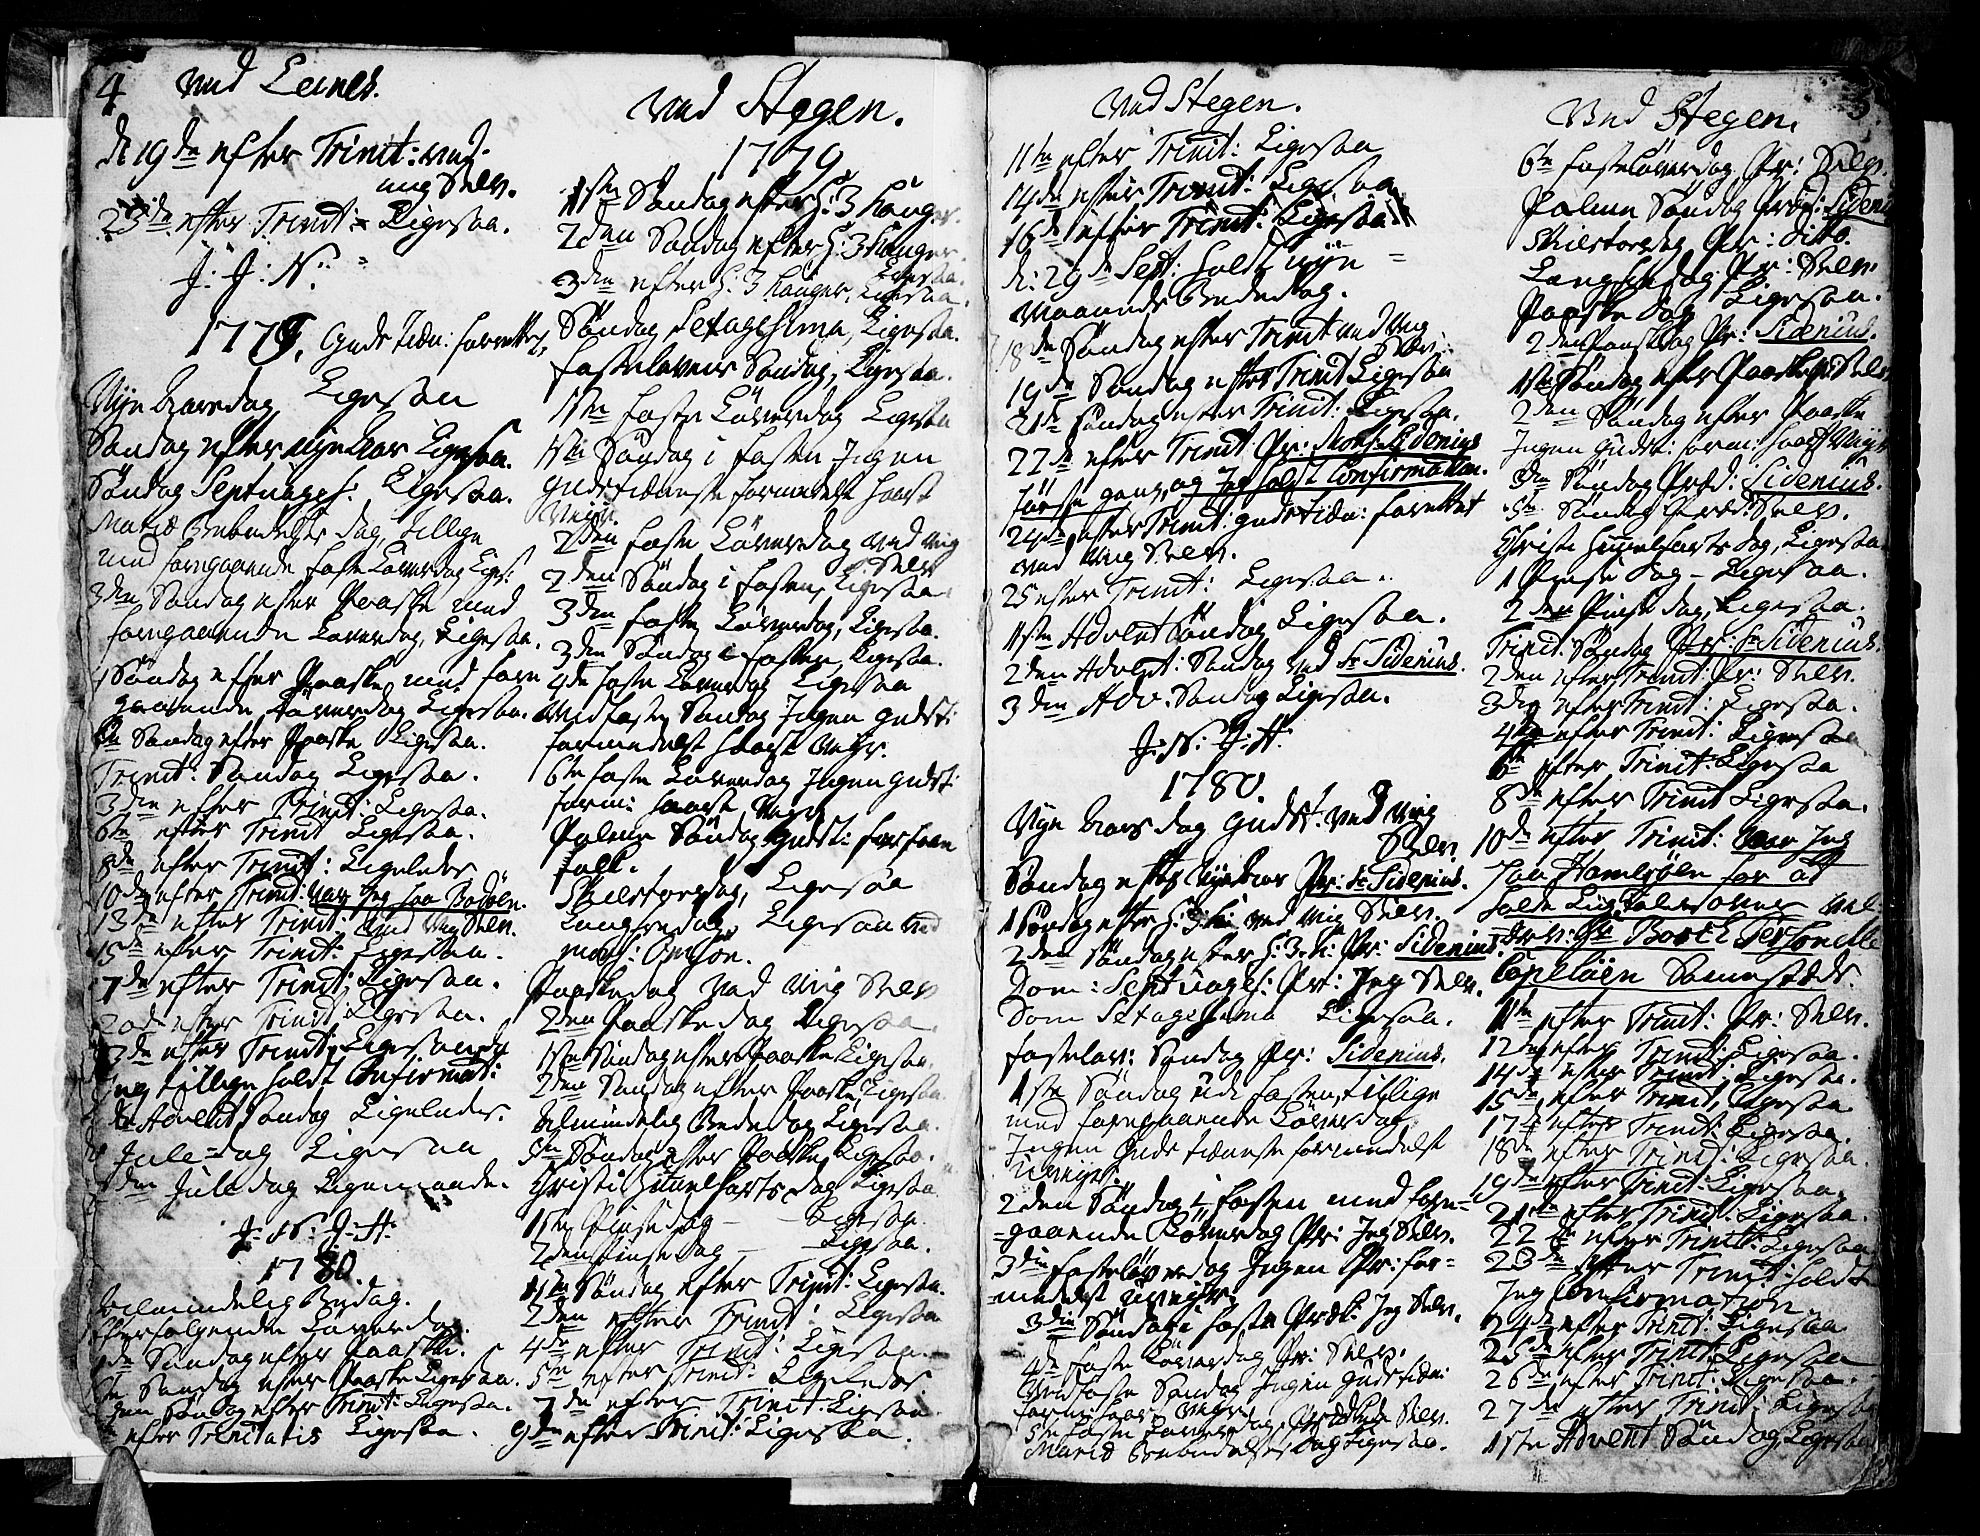 4
ved Leines.
d. 19de efter Trinit: ved
mig Selv.
23de efter Trinit = Ligesaa.
J: J: N:
1779. Guds tien: forrettet,
Nye Aarsdag Ligesaa
Søndag efter nyeAar Ligesaa.
Søndag Septuages: Ligesaa.
Mariæ Bebudelses dag, tillige
med foregaaende faste Løverdag Liges:
3den Søndag efter Paaske med
foregaaende Løverdag, Ligesaa.
4 Søndag efter Paaske med fore
gaaende Løverdag Ligesaa.
Søndag efter Paaske Ligesaa.
Trinit: Søndag Ligesaa.
3die efter Trinit: Ligesaa.
6te efter Trinit Ligesaa.
8de efter Trinit: Ligeledes
10de efter Trinit: var Jeg paa Bodøen.
13de efter Trinit: Ved Mig Selv.
15de efter Trinit: Ligesaa.
17de efter Trinit: Ligesaa.
20de efter Trinit Ligesaa.
22de efter Trinit: Ligesaa da
Jeg tillige holdt Confirmat:
Advent Søndag Ligeledes.
Jule-dag Ligesaa
den Juledag Ligemaade.
J: N: J: H:
1780.
Almindelig Bededag.
Efterfølgende Løverdag.
4de Søndag efter Paaske.
Søndag efter Paaske Ligesaa.
Søndag efter Trinit: Ligesaa.
efter Trinitatis Ligesaa.
ved Stegen.
1779
1ste Søndag efter H: 3 Konger.
2den Søndag efter H: 3 Konger.
Ligesaa.
3den efter H: 3 Konger, Ligesaa.
Søndag Sexagesima, Ligesaa.
Fastelavens Søndag, Ligesaa.
1ste faste Løverdag Ligesaa
1ste Søndag i fasten Jngen
gudstieneste formedelst haart
Veir.
2den faste Løverdag ved mig
Selv
2den Søndag i fasten, Ligesaa.
3die faste Løverdag, Ligesaa.
3die Søndag i fasten, Ligesaa.
4de faste Løverdag Ligesaa
Midfaste Søndag Jngen gudst:
formedelst haart Veir.
6te faste Løverdag Jngen gudst:
form: haart Veir
Palme Søndag gudst: for faae
folk.
Skiertorsdag, Ligesaa
Langfredag, Ligesaa ved
Paaskedag Ved Mig Selv
2den Paaskedag Ligesaa.
1ste Søndag efter Paaske Ligesaa.
2den Søndag efter Paaske, Ligesaa.
Almindelig Bededag Ligesaa.
5te Søndag efter Paaske, Ligesaa.
Christi Himmelfarts dag Ligesaa
1ste Pinsedag — Ligesaa.
2den Pinsedag — Ligesaa.
1ste Søndag efter Trinit: Ligesaa.
2den efter Trinit: Ligesaa
4de efter Trinit: Ligesaa.
5te efter Trinit: Ligeledes
7de efter Trinit: Ligesaa.
9de efter Trinit: Ligesaa.
Ved Stegen.
11te efter Trinit: Ligesaa
14de efter Trinit: Ligesaa
16de efter Trinit: Ligesaa.
d: 29de Sept: holdt nye =
Maaneds Bededag.
18de Søndag efter Trinit ved Mig
Selv.
19de Søndag efter Trinit Ligesaa
21de Søndag efter Trinit: Ligesaa.
22de efter Trinit Pr: Mons. Sidenius
første gang, og Jeg holdt Confirmation.
24de efter Trinit: gudstien: forrettet
ved Mig Selv.
25 efter Trinit: Ligesaa.
1ste Advent Søndag Ligesaa.
2den Advent: Søndag ved Hr Sidenius.
3die Adv. Søndag Ligesaa.
J: N: J: H:
1780.
Nye Aars dag gudst: ved Mig
Selv.
Søndag efter NyeAar Pr: Hr Sidenius.
1 Søndag efter H: 3 K: ved Mig Selv.
2den Søndag efter H: 3. K: Pr: Sidenius.
Dom: Septuages: Pr: Jeg Selv.
Dom Sexagesima Ligesaa.
Fastelav: Søndag Pr: Sidenius.
1ste Søndag udi fasten, tillige
med foregaaende Løverdag
Jngen Guds tieneste formedelst
Uveir.
2den Søndag i fasten med fore-
gaaende Løverdag Pr: Jeg Selv.
3die fasteløverdag Jngen Pr: for-
medelst Uveir.
3die Søndag i faste Præd: Jeg Selv.
4de faste Løverdag Pr: Selv.
Midfaste Søndag Jngen gudstien:
form: haart Veir.
5te faste Løverdag, Prædikede Selv.
Mariæ Bebudelses Dag Ligesaa.
Ved Stegen.
5.
6te fasteløverdag Pr: Selv.
Palme Søndag Præd: Sidenius
Skiertorsdag Pr: dito.
Langfredag Pr: Selv.
Paaske Dag Ligesaa.
2den Paaskedag Pr: Sidenius.
1ste Søndag efter Paaske Pr: Selv
2den Søndag efter Paaske
Jngen gudst: form: haart Veir
3die Søndag Præd: Sidenius.
5te Søndag Præd: Selv.
Christi Himmelfarts dag, Ligesaa
1 Pinse Dag — Ligesaa.
2den Pinse dag, Ligesaa.
Trinit. Søndag Pr: Hr Sidenius.
2den efter Trinit: Pr: Selv.
3die efter Trinit: Ligesaa.
4de efter Trinit: Ligesaa
6te efter Trinit: Ligesaa
8de efter Trinit Ligesaa.
10de efter Trinit: var Jeg
paa Hamerøen for at
holde Liigtale over Vel-
Hr Borch Personelle
Capellan Sammesteds.
11te efter Trinit: Pr: Selv.
12te efter Trinit: Ligesaa.
14de efter Trinit: Ligesaa.
15de efter Trinit, Ligesaa
17de efter Trinit: Ligesaa.
18de efter Trinit: Ligesaa.
19de efter Trinit: Ligesaa.
21de efter Trinit: Ligesaa.
22de efter Trinit: Ligesaa
23de efter Trinit: holdt
Jeg Confirmation.
24de efter Trinit: Ligesaa
25de efter Trinit: Ligesaa
26de efter Trinit: Ligesaa.
27de efter Trinit: Ligesaa
1ste Advent Søndag, Ligesaa